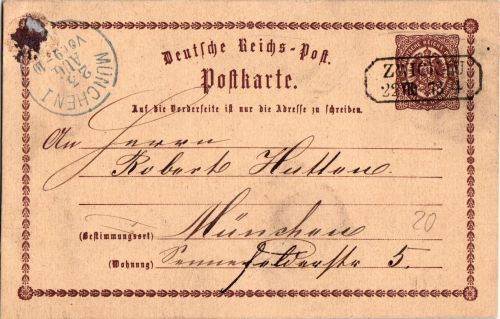 Deutsche Reichs-Post.
Postkarte.
Auf die Vorderseite ist nur die Adresse zu schreiben.
MÜNCHEN I
23
AUG.
An Herrn
Robert Hutton
(Bestimmungsort) München
(Wohnung) Sennefelderstr 5.
20